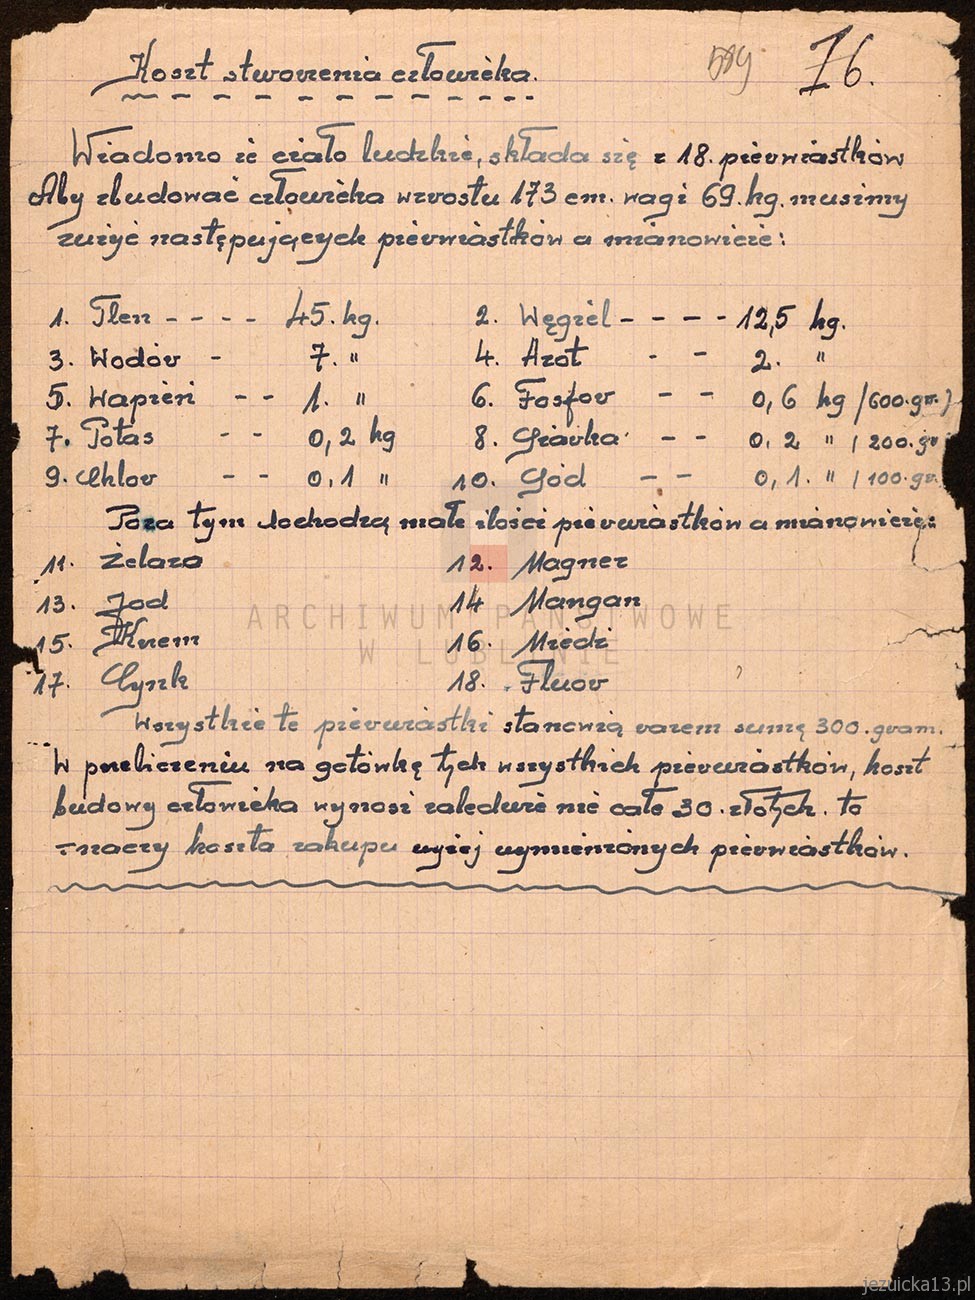 589 76.
Koszt stworzenia człowieka.
Wiadomo że ciało ludzkie, składa się z 18. pierwiastków
Aby zbudować człowieka wzrostu 173 cm. wagi 69. kg. musimy
zużyć następujących pierwiastków a mianowicie:
1. Tlen - - - - 45. kg. 2. Węgiel - - - - 12,5 kg.
3. Wodór - 7. " 4. Azot - - 2. "
5. Wapień - - 1. " 6. Fosfor - - 0,6 kg /600.gr./
7. Potas - - 0,2 kg 8. Siarka - - 0,2 " /200.gr
9. Chlor - - 0.1 " 10. Sód - - 0,1. " /100.gr.
Poza tym dochodzą małe ilości pierwiastków a mianowicię:
11. Żelazo 12. Magnez
13. Jod 14 Mangan
15. Krzem 16. Miedź
17. Cynk 18. Fluor
Wszystkie te pierwiastki stanowią razem sumę 300.gram.
W przeliczeniu na gotówkę tych wszystkich pierwiastków, koszt
budowy człowieka wynosi zaledwie nie całe 30. złotych. to
znaczy koszta zakupu wyżej wymienionych pierwiastków.
ARCHIWUM PAŃSTWOWE
W LUBLINIE
jezuicka13.pl